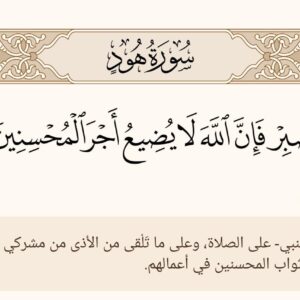 سُورَةُ هُودٍ
صْبِرْ فَإِنَّ ٱللَّهَ لَا يُضِيعُ أَجْرَ ٱلْمُحْسِنِينَ
لنبي- على الصلاة، وعلى ما تَلْقى من الأذى من مشركي
ثواب المحسنين في أعمالهم.